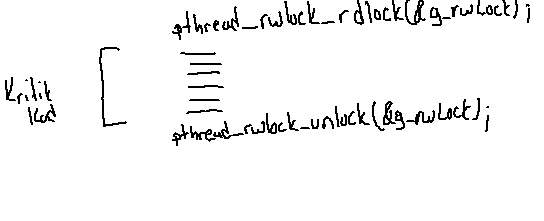 pthread_rwlock_rdlock(&g_rwlock);
Kritik
Kod
pthread_rwlock_unlock(&g_rwlock);